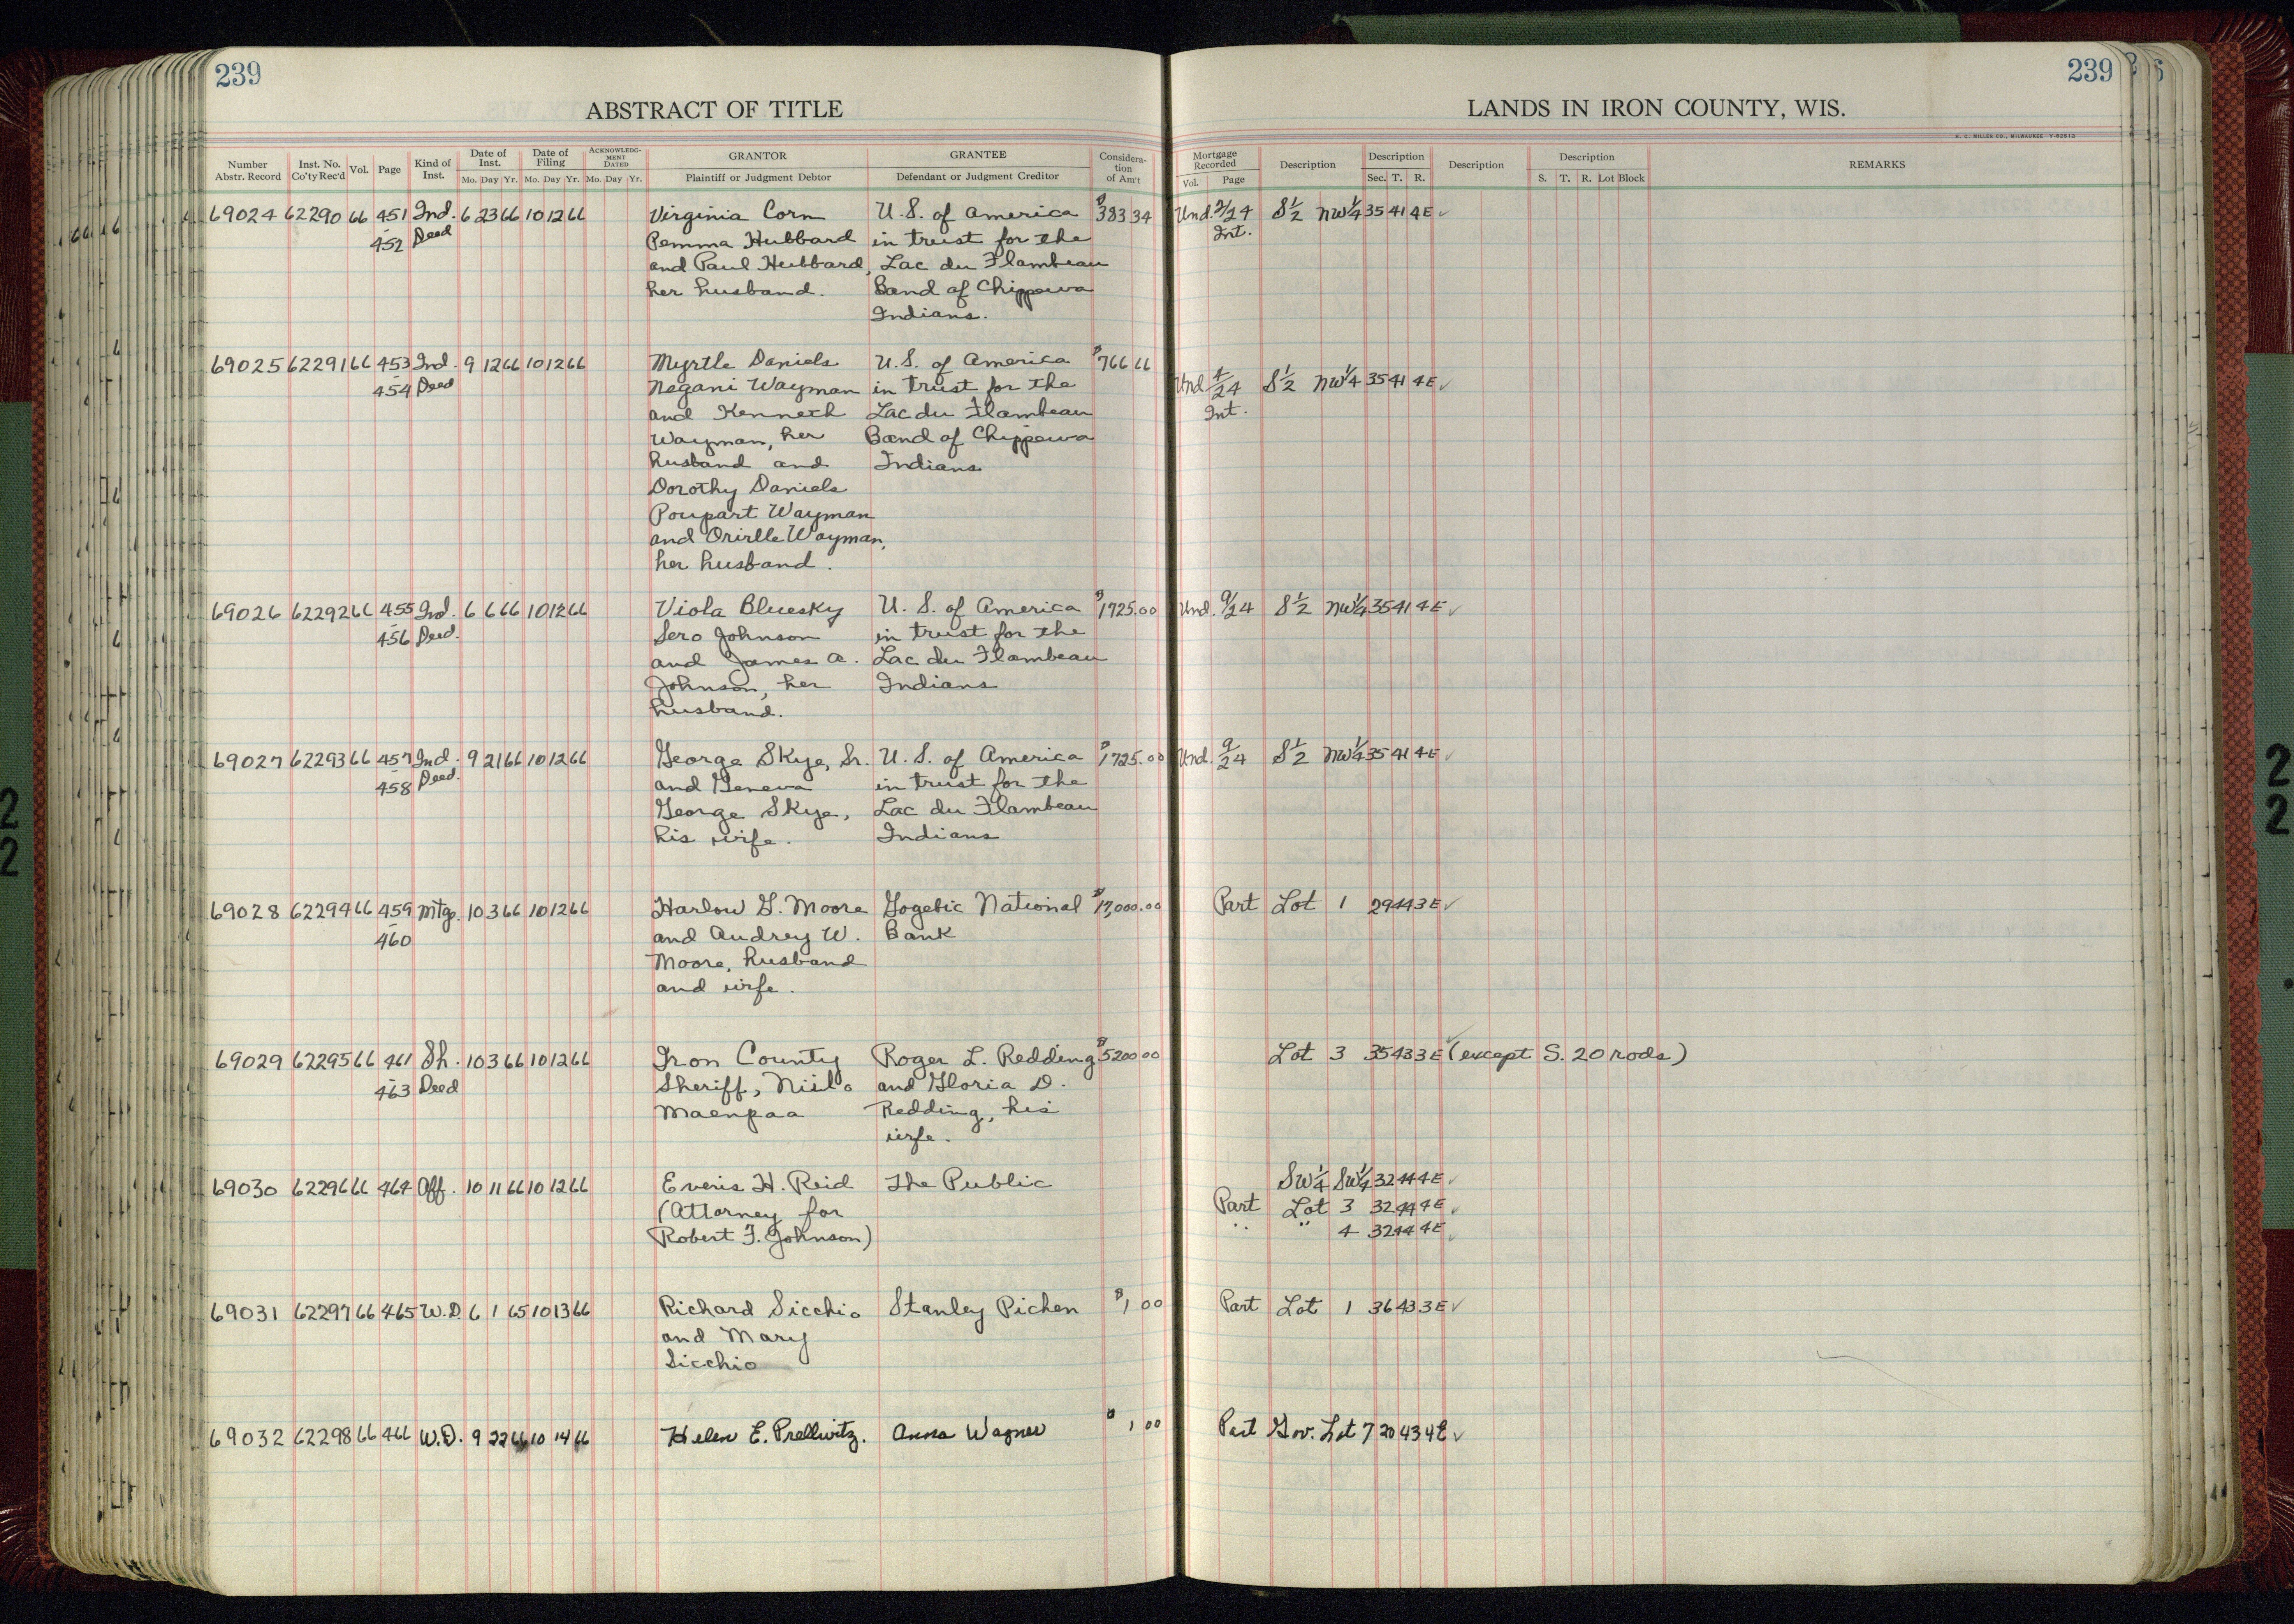 239
239
ABSTRACT OF TITLE
LANDS IN IRON COUNTY, WIS.
H. C. MILLER CO., MILWAUKEE
Number Abstr. Record
Inst. No. Co'ty Rec'd
Vol.
Page
Kind of Inst.
Date of Inst.
Mo. Day Yr.
Date of Filing
Mo. Day Yr.
ACKNOWLEDGMENT DATED
Mo. Day Yr.
GRANTOR
Plaintiff or Judgment Debtor
GRANTEE
Defendant or Judgment Creditor
Consideration of Am't
Mortgage Recorded
Vol. Page
Description
Description
Sec. T. R.
Description
Description
S. T. R. Lot Block
REMARKS
69024 62290 66 451 Ind. 6 23 66 10 12 66 Virginia Corn U.S. of America $383 34 Und. 2/24 S½ NW¼ 35 41 4E ✓
452 Deed Pemma Hubbard in trust for the Int.
and Paul Hubbard, Lac du Flambeau
her husband. Band of Chippewa
Indians.
69025 62291 66 453 Ind. 9 12 66 10 12 66 Myrtle Daniels U.S. of America $766 66
454 Deed Negani Wayman in trust for the Und 4/24 S½ NW¼ 35 41 4E ✓
and Kenneth Lac du Flambeau Int.
Wayman, her Band of Chippewa
husband and Indians
Dorothy Daniels
Poupart Wayman
and Orirlle Wayman,
her husband.
69026 62292 66 455 Ind. 6 6 66 10 12 66 Viola Bluesky U.S. of America $1725.00 Und. 9/24 S½ NW¼ 35 41 4E ✓
456 Deed. Sero Johnson in trust for the
and James A. Lac du Flambeau
Johnson, her Indians
husband.
69027 62293 66 457 Ind. 9 21 66 10 12 66 George Skye, Sr. U.S. of America $1725.00 Und. 9/24 S½ NW¼ 35 41 4E ✓
458 Deed. and Geneva in trust for the
George Skye, Lac du Flambeau
his wife. Indians
69028 62294 66 459 Mtge. 10 3 66 10 12 66 Harlow G. Moore Gogebic National $17,000.00 Part Lot 1 29 44 3E ✓
460 and Audrey W. Bank
Moore, husband
and wife.
69029 62295 66 461 Sh. 10 3 66 10 12 66 Iron County Roger L. Redding $5200 00 Lot 3 35 43 3E ✓ (except S. 20 rods)
463 Deed Sheriff, Niilo and Gloria D.
Maenpaa Redding, his
wife.
69030 62296 66 464 Aff. 10 11 66 10 12 66 Everis H. Reid The Public SW¼ SW¼ 32 44 4E ✓
(Attorney for Part Lot 3 32 44 4E ✓
Robert F. Johnson) " " 4 32 44 4E ✓
69031 62297 66 465 W.D. 6 1 65 10 13 66 Richard Sicchio Stanley Pichen $1 00 Part Lot 1 36 43 3E ✓
and Mary
Sicchio
69032 62298 66 466 W.D. 9 22 66 10 14 66 Helen E. Prellwitz. Anna Wagner $1 00 Part Gov. Lot 7 20 43 4E ✓
22
22